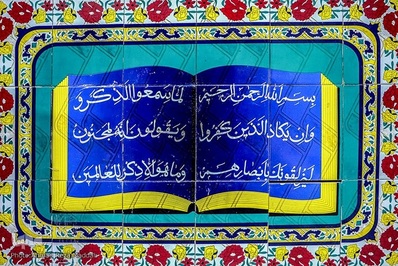 بسم الله الرحمن الرحیم
وان یکاد الذین کفروا
لیزلقونک بابصارهم
لما سمعوا الذکر و
ویقولون انه لمجنون
وما هو الا ذکر للعالمین